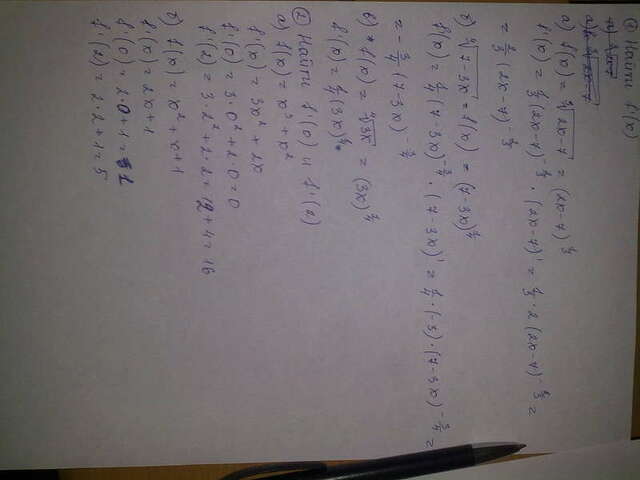 ① Найти f'(x)
а) f(x) = ∛(2x-7) = (2x-7)^(1/3)
f'(x) = 1/3 (2x-7)^(-2/3) · (2x-7)' = 1/3 · 2 (2x-7)^(-2/3) =
= 2/3 (2x-7)^(-2/3)
б) ∜(7-3x) = f(x) = (7-3x)^(1/4)
f'(x) = 1/4 (7-3x)^(-3/4) · (7-3x)' = 1/4 · (-3) · (7-3x)^(-3/4) =
= -3/4 (7-3x)^(-3/4)
f(x) = ∜(3x) = (3x)^(1/4)
② Найти f'(0) и f'(2)
а) f(x) = x³ + x²
f'(0) = 3·0² + 2·0 = 0
f'(2) = 3·2² + 2·2 = 12 + 4 = 16
б) f(x) = x² + x + 1
f'(x) = 2x + 1
f'(0) = 2·0 + 1 = 1
f'(2) = 2·2 + 1 = 5